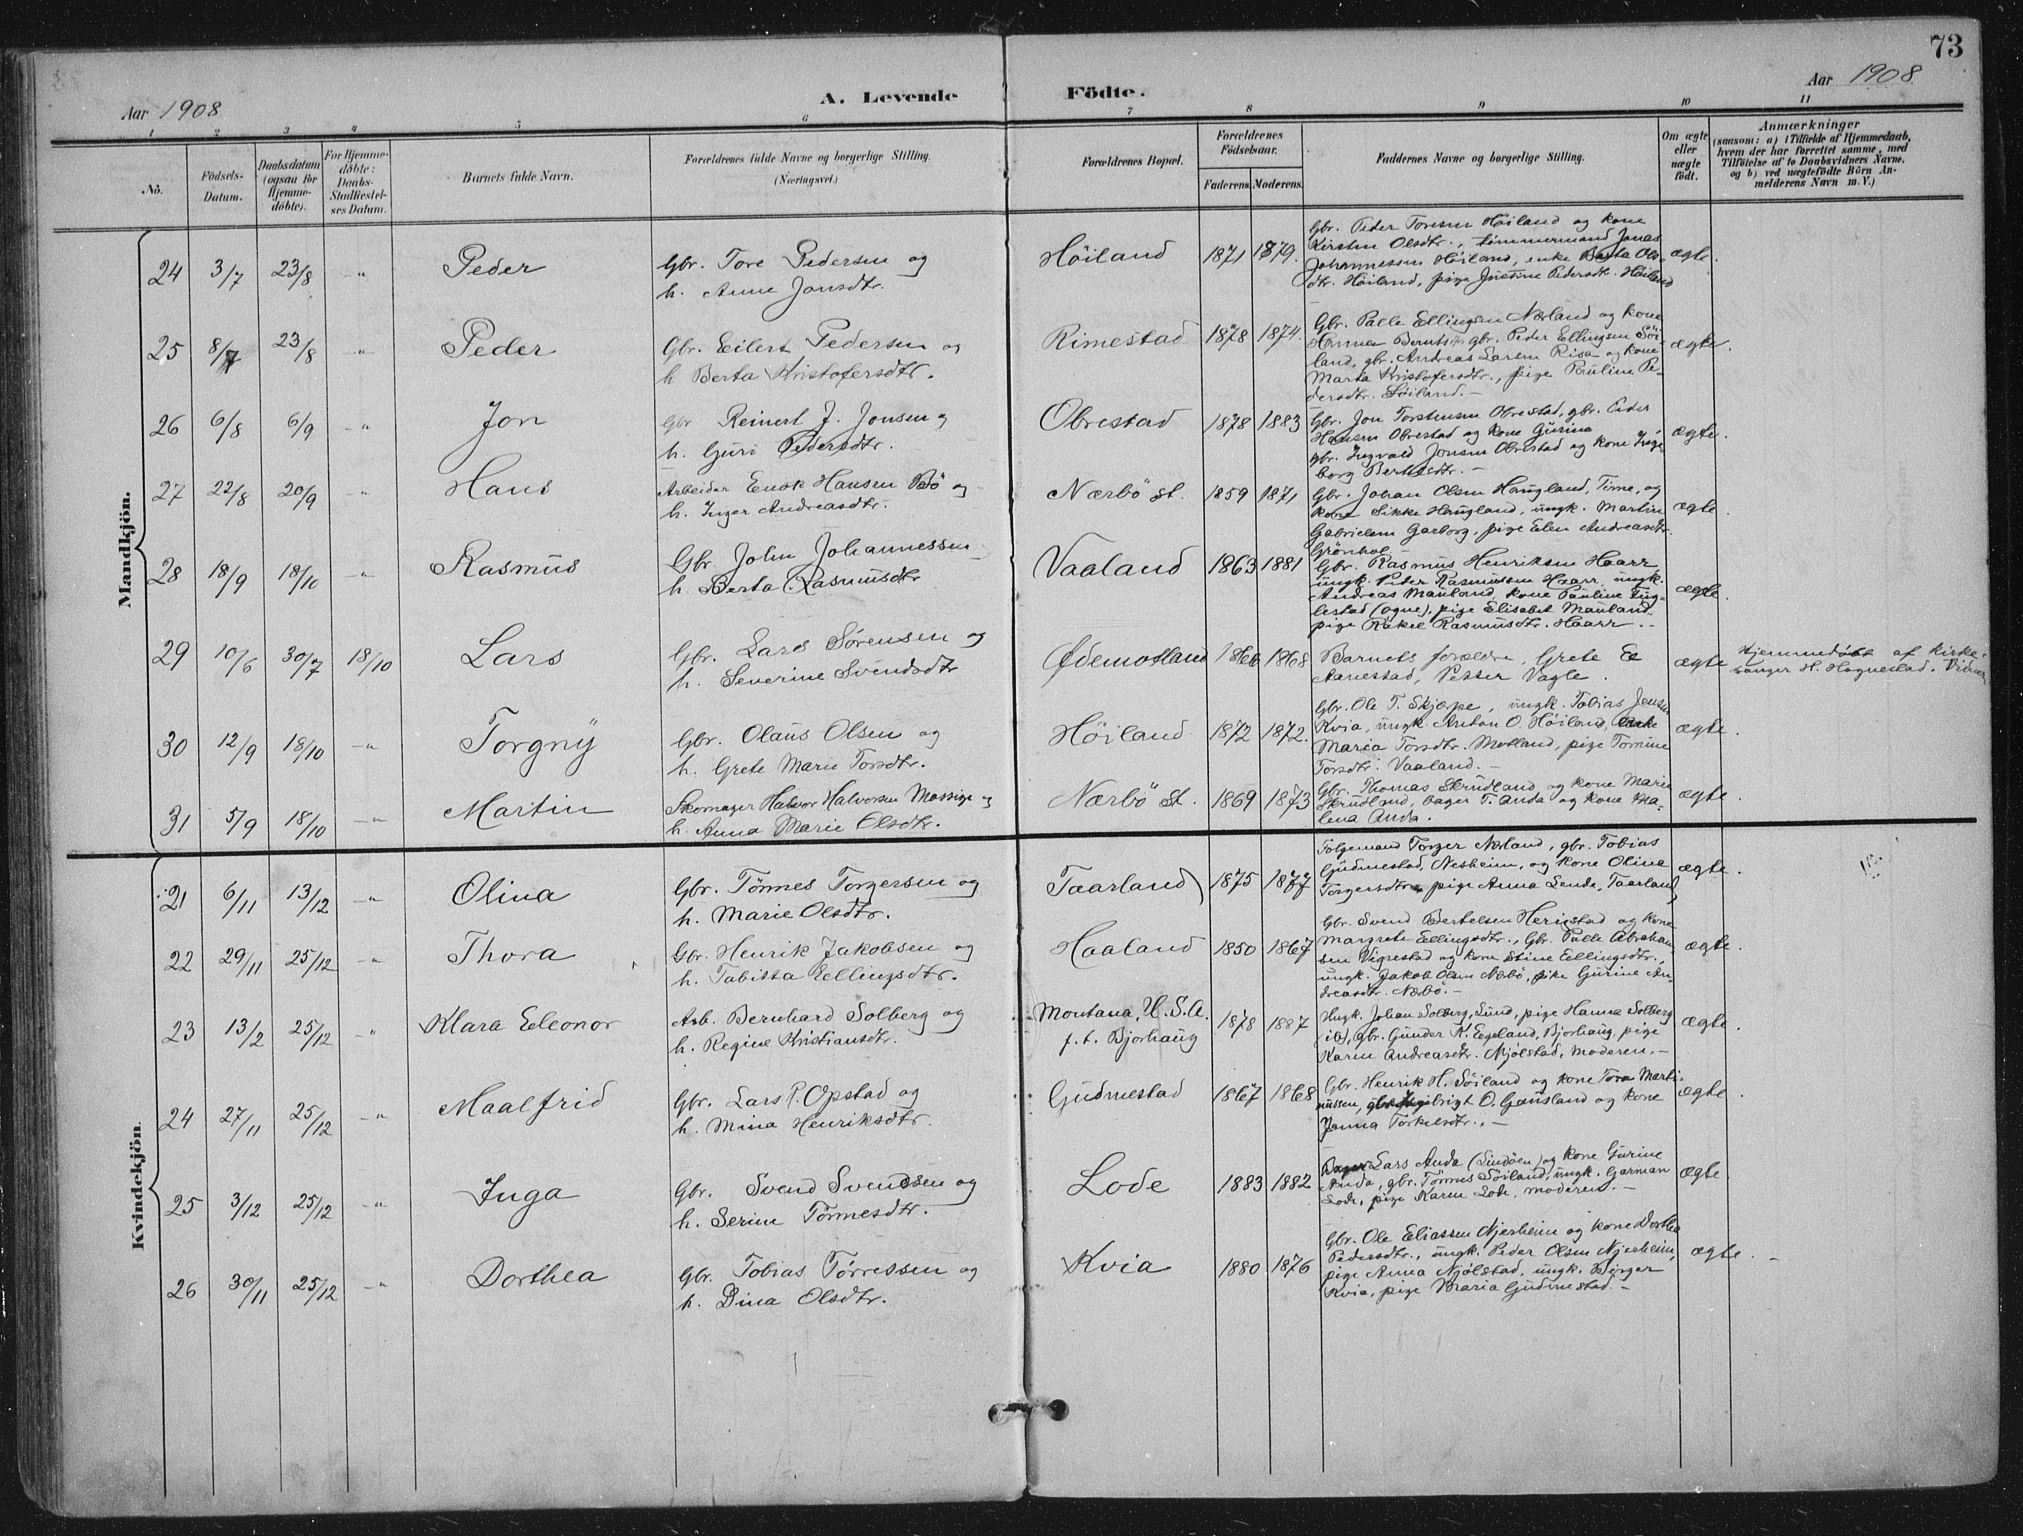 73
Aar 1908
A. Levende Födte.
Aar 1908
1 2 3 4 5 6 7 8 9 10 11
No.
Födsels-Datum.
Daabsdatum (ogsaa for Hjemmedöbte).
For Hjemmedöbte: Daabs-Stadfæstelses Datum.
Barnets fulde Navn.
Forældrenes fulde Navne og borgerlige Stilling.
(Næringsvei.)
Forældrenes Bopæl.
Forældrenes Födselsaar.
Faderens. Moderens.
Faddernes Navne og borgerlige Stilling.
Om ægte eller uægte födt.
Anmærkninger
(saasom: a) i Tilfælde af Hjemmedaab,
hvem der har forrettet samme, med
Tilföielse af to Daabsvidners Navne.
og b) ved uægtefödte Börn An-
melderens Navn m. V.)
Mandkjön.
24 3/7 23/8 -"- Peder
Gbr. Tore Pedersen og
h. Anne Jonsdtr.
Höiland 1871 1879.
Gbr. Peder Torsen Höiland og kone
Kirsten Olsdtr., tømmermand Jonas
Johannessen Höiland, enke Berta Ols-
dtr. Höiland, pige Justine Pedersdt. Höiland
ægte.
25 8/7 23/8 -"- Peder
Gbr. Eilert Pedersen og
h Berta Kristofersdtr.
Rimestad 1878 1874.
Gbr. Palle Ellingsen Nærland og kone
Hanna gbr. Peder Ellingsen Söi-
land, gbr. Andreas Larsen Risa og kone
Marta Kristofersdtr., pige Pauline Pe-
dersdtr. Söiland.-
ægte.
26 6/8 6/9 -"- Jon
Gbr Reinert J. Jonsen og
h. Guri Pedersdtr.
Obrestad 1878 1883
Gbr. Jon Torstensen Obrestad, gbr. Peder
Hansen Obrestad og kone Gurina
gbr. Ingvald Jonsen Obrestad og kone Inge
borg Bertesdtr. -
ægte.
27 22/8 20/9 -"- Hans
Arbeider Enok Hansen Bö og
h. Inger Andreasdtr.
Nærbö st. 1859 1871
Gbr. Johan Olsen Haugland, Time, og
kone Sikke Haugland, ungk. Martin
Gabrielsen Garborg, pige Elen Andreasdtr.
Grönhol -
ægte.
28 18/9 18/10 -"- Rasmus
Gbr. John Johannessen
h. Berta Rasmusdtr
Vaaland 1863 1881
Gbr. Rasmus Henriksen Haarr
ungk. Peder Rasmussen Haarr, ungk.
Andreas Mauland, kone Pauline Fug-
lestad (Ogne), pige Elisabet Mauland.
pige Rakel Rasmusdtr. Haarr. -
ægte.
29 10/6 30/7 18/10 Lars
Gbr. Lars Sörensen og
h. Severine Svendsdtr
Ødemotland 1866 1868
Barnets forældre, Grete E
Aanestad, Petter Vagle.
ægte
Hjemmedöbt af kirke-
sanger H. Hognestad.
30 12/9 18/10 -"- Torgny
Gbr. Olaus Olsen og
h. Grete Marie Torsdtr.
Höiland 1872 1872.
Gbr. Ole T. Skjæpe, ungk. Tobias Jonsen
Kvia, ungk. Anton O. Höiland, enke
Maria Torsdtr. Motland, pige Tomine
Torsdtr. Vaaland. -
ægte.
31 5/9 18/10 -"- Martin
Skomager Halvor Halvorsen Mossige og
h. Anna Marie Olsdtr.
Nærbö st. 1869 1873
Gbr. Thomas Skrudland og kone Marie
Skrudland, bager T. Anda og kone Ma-
lena Anda.
ægte.
Kvindekjön.
21 6/11 13/12 -"- Olina
Gbr. Tönnes Torgersen og
h. Marie Olsdtr.
Taarland 1875 1877
Folgemand Torger Nærland, gbr. Tobias
Gudmestad, Nesheim, og kone Olina
Torgersdtr, pige Anna Lende, Taarland
ægte.
22 29/11 25/12 -"- Thora
Gbr. Henrik Jakobsen og
h. Tabitta Eellingsdtr.
Haaland 1850 1867
Gbr. Svend Bertelsen Herigstad og kone
Margrete Eellingsdtr., Gbr. Palle Abraham-
sen Vigrestad og kone Stine Eellingsdtr.,
ungk. Jakob Olsen Nærbö, pike Gurine An-
dreasdtr. Nærbö. -
ægte.
23 13/2 25/12 -"- Klara Eleonor
Arb. Bernhard Solberg og
h. Regine Kristiansdtr.
Montana, U.S.A.
f. t. Bjorhaug
1878 1887
Ungk. Johan Solberg, Lund, pige Hanna Solberg
(ib), gbr. Gunder K. Egeland, Bjorhaug, pige
Karen Andreasdtr. Njølstad, moderen. -
ægte.
24 27/11 25/12 -"- Maalfrid
Gbr. Lars P. Opstad og
h. Mina Henriksdtr.
Gudmestad 1867 1868
Gbr. Henrik H. Söiland og kone Tora Marti-
nussen, gbr. Ingebrigt O. Gausland og kone
Janna Torkelsdtr. -
ægte.
25 3/12 25/12 -"- Inga
Gbr. Svend Svendsen og
h. Serine Tönnesdtr.
Lode 1883 1882
Bager Lars Anda (Lindöen) og kone Gurine
Anda, gbr. Tönnes Söiland, ungk. Garman
Lode, pige Karen Lode, moderen. -
ægte
26 30/11 25/12 -"- Dorthea
Gbr. Tobias Törressen og
h. Dina Olsdtr.
Kvia 1880 1876
Gbr. Ole Eliassen Njærheim og kone Dorthea
Pedersdtr., ungk. Peder Olsen Njærheim,
pige Anna Njølstad, ungk. Birger
Kvia, pige Maria Gudmestad. -
ægte. -